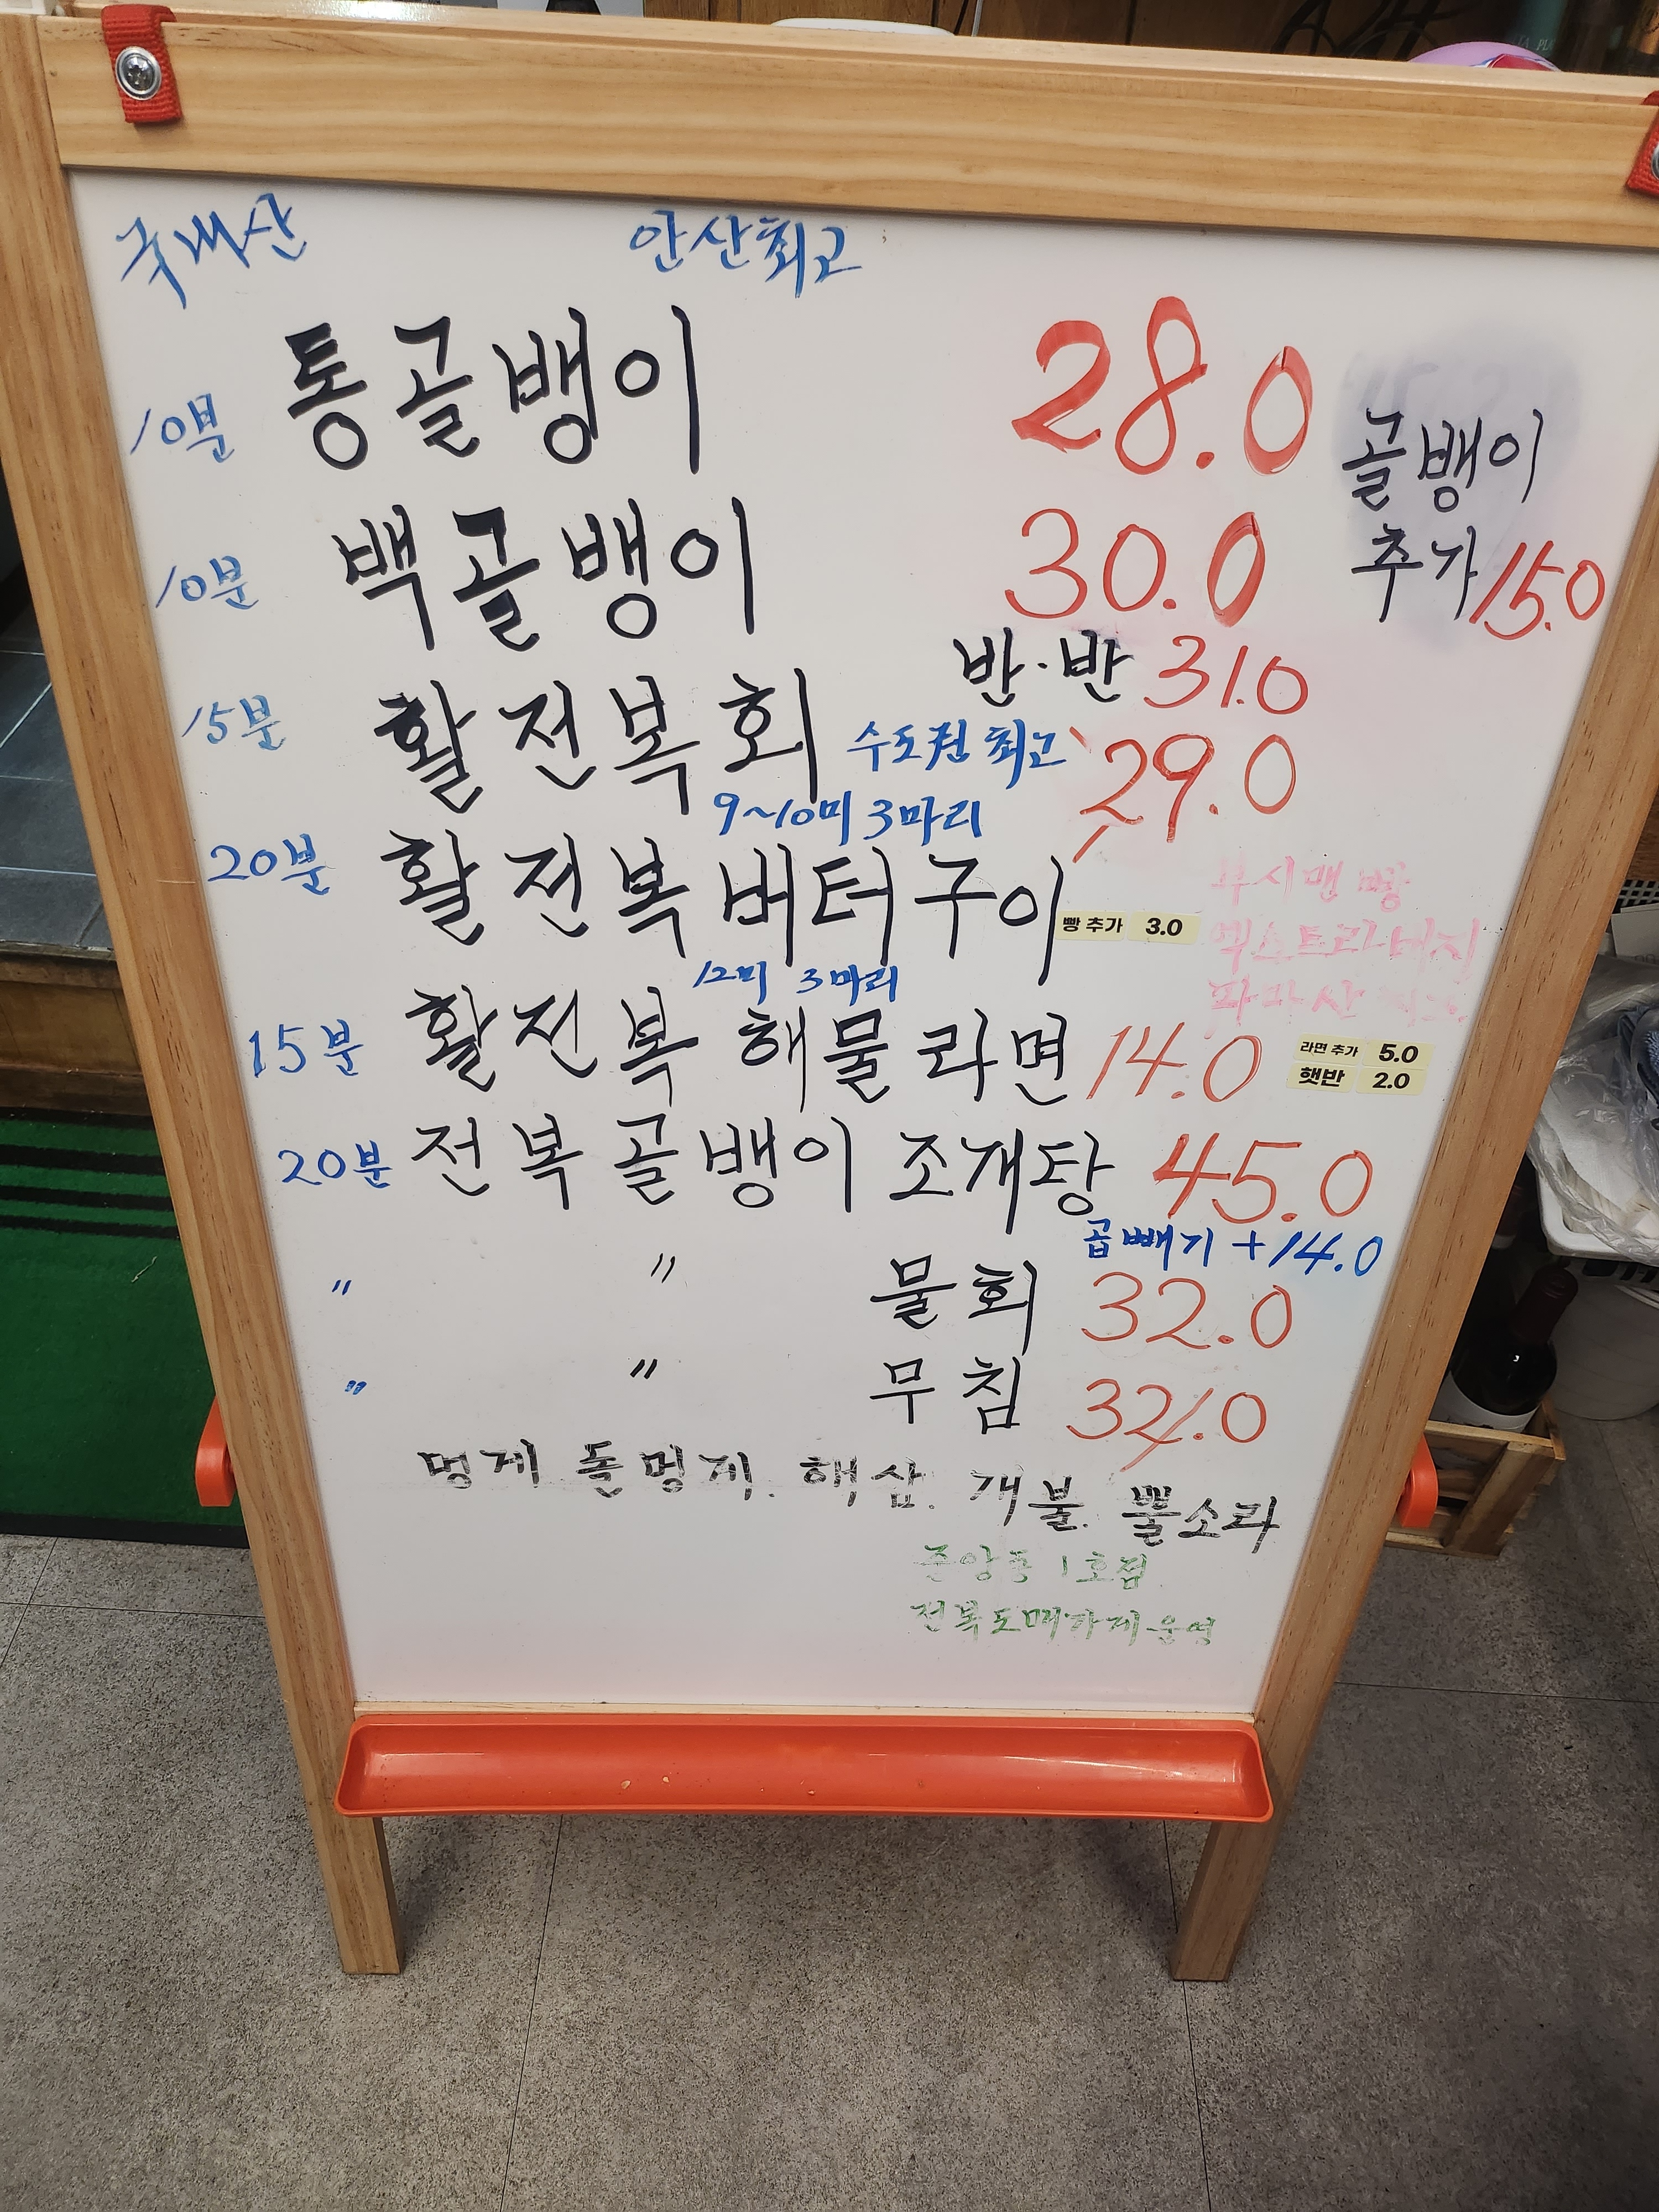 국내산 안산최고
10분 통골뱅이 28.0
골뱅이
추가 15.0
10분 백골뱅이 30.0
반·반 31.0
15분 활전복회 수도권 최고 29.0
9~10미 3마리
20분 활전복 버터구이 빵 추가 3.0
부시맨 빵
엑스트라버진
파마산
12미 3마리
15분 활전복 해물라면 14.0
라면 추가 5.0
햇반 2.0
20분 전복골뱅이 조개탕 45.0
곱빼기 +14.0
" " 물회 32.0
" " 무침 32.0
멍게 돌멍게. 해삼. 개불. 뿔소라
중앙동 1호점
전복도매가게운영